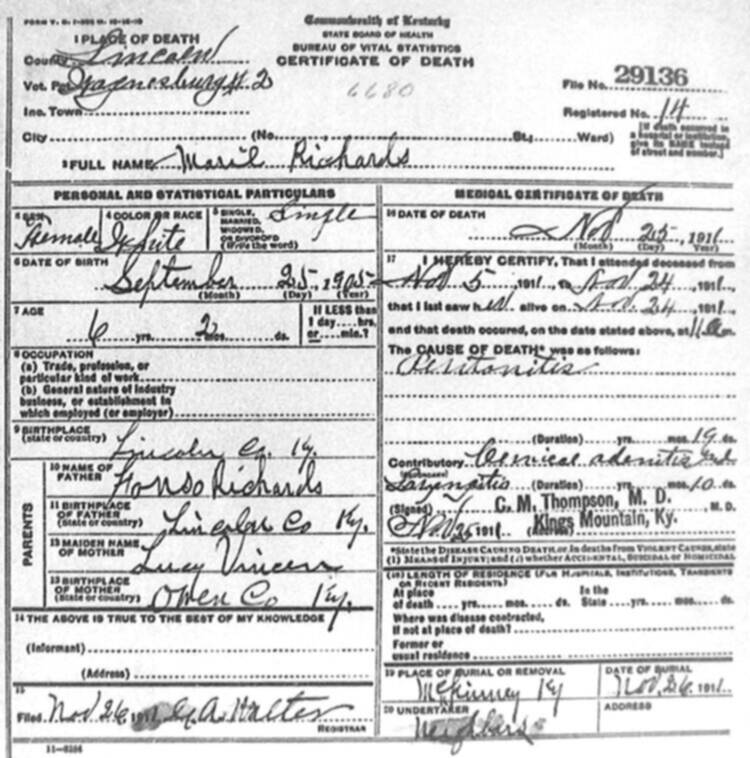 FORM V. S. 1-
Commonwealth of Kentucky
STATE BOARD OF HEALTH
BUREAU OF VITAL STATISTICS
CERTIFICATE OF DEATH
1 PLACE OF DEATH
County Lincoln
Vot. Pct. Waynesburg # 2
Inc. Town
City (No. St.; Ward)
6680
File No. 29136
Registered No. 14
[If death occurred in
a hospital or institution,
give its NAME instead
of street and number.]
2 FULL NAME Richards
PERSONAL AND STATISTICAL PARTICULARS
3 SEX
Female
4 COLOR OR RACE
White
5 SINGLE,
MARRIED,
WIDOWED,
OR DIVORCED
(Write the word)
Single
6 DATE OF BIRTH
September 25 1905
(Month) (Day) (Year)
7 AGE
6 yrs. 2 mos. ds.
If LESS than
1 day....hrs.
or....min.?
8 OCCUPATION
(a) Trade, profession, or
particular kind of work
(b) General nature of industry
business, or establishment in
which employed (or employer)
9 BIRTHPLACE
(state or country)
Lincoln Co. Ky.
PARENTS
10 NAME OF
FATHER
Fonso Richards
11 BIRTHPLACE
OF FATHER
(State or country)
Lincoln Co Ky.
12 MAIDEN NAME
OF MOTHER
Lucy
13 BIRTHPLACE
OF MOTHER
(State or country)
Owen Co Ky.
14 THE ABOVE IS TRUE TO THE BEST OF MY KNOWLEDGE
(Informant)
(Address)
15
Filed Nov. 26 1911 A Walter
REGISTRAR
11-
MEDICAL CERTIFICATE OF DEATH
16 DATE OF DEATH
Nov 25, 1911
(Month) (Day) (Year)
17 I HEREBY CERTIFY, That I attended deceased from
Nov 5, 1911, to Nov. 24, 1911,
that I last saw her alive on Nov. 24, 1911,
and that death occured, on the date stated above, at
The CAUSE OF DEATH* was as follows:
Peritonitis
(Duration) yrs. mos. 19 ds.
Contributory Cervical adenitis and
Laryngitis (Duration) yrs. mos. 10 ds.
(Signed) C. M. Thompson, M. D. M. D.
Nov 25 1911 (Address) Kings Mountain, Ky.
*State the DISEASE CAUSING DEATH, or, in deaths from VIOLENT CAUSES, state
(1) MEANS OF INJURY; and (2) whether ACCIDENTAL, SUICIDAL or HOMICIDAL.
(18) LENGTH OF RESIDENCE (FOR HOSPITALS, INSTITUTIONS, TRANSIENTS
OR RECENT RESIDENTS)
At place
of death yrs. mos. ds.
In the
State yrs. mos. ds.
Where was disease contracted,
if not at place of death?
Former or
usual residence
19 PLACE OF BURIAL OR REMOVAL
McKinney Ky
DATE OF BURIAL
Nov. 26 1911
20 UNDERTAKER
Neighbors
ADDRESS